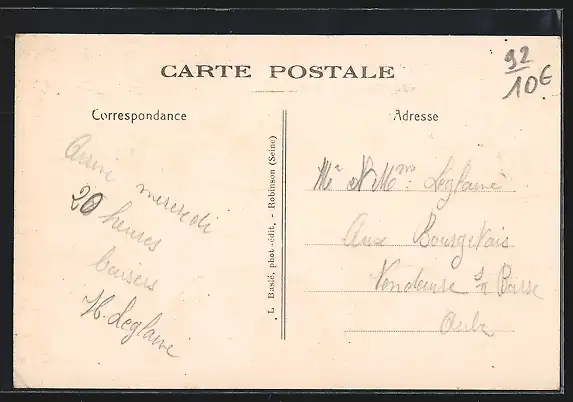 CARTE POSTALE
92
10€
Correspondance
Adresse
Arrivé mercredi
20 heures
baisers
H. Leglaive
L. Baslé, phot-édit. - Robinson (Seine)
Mr & Mme Leglaive
Aux Bourgetais
Vendeuvre s/ Barse
Aube